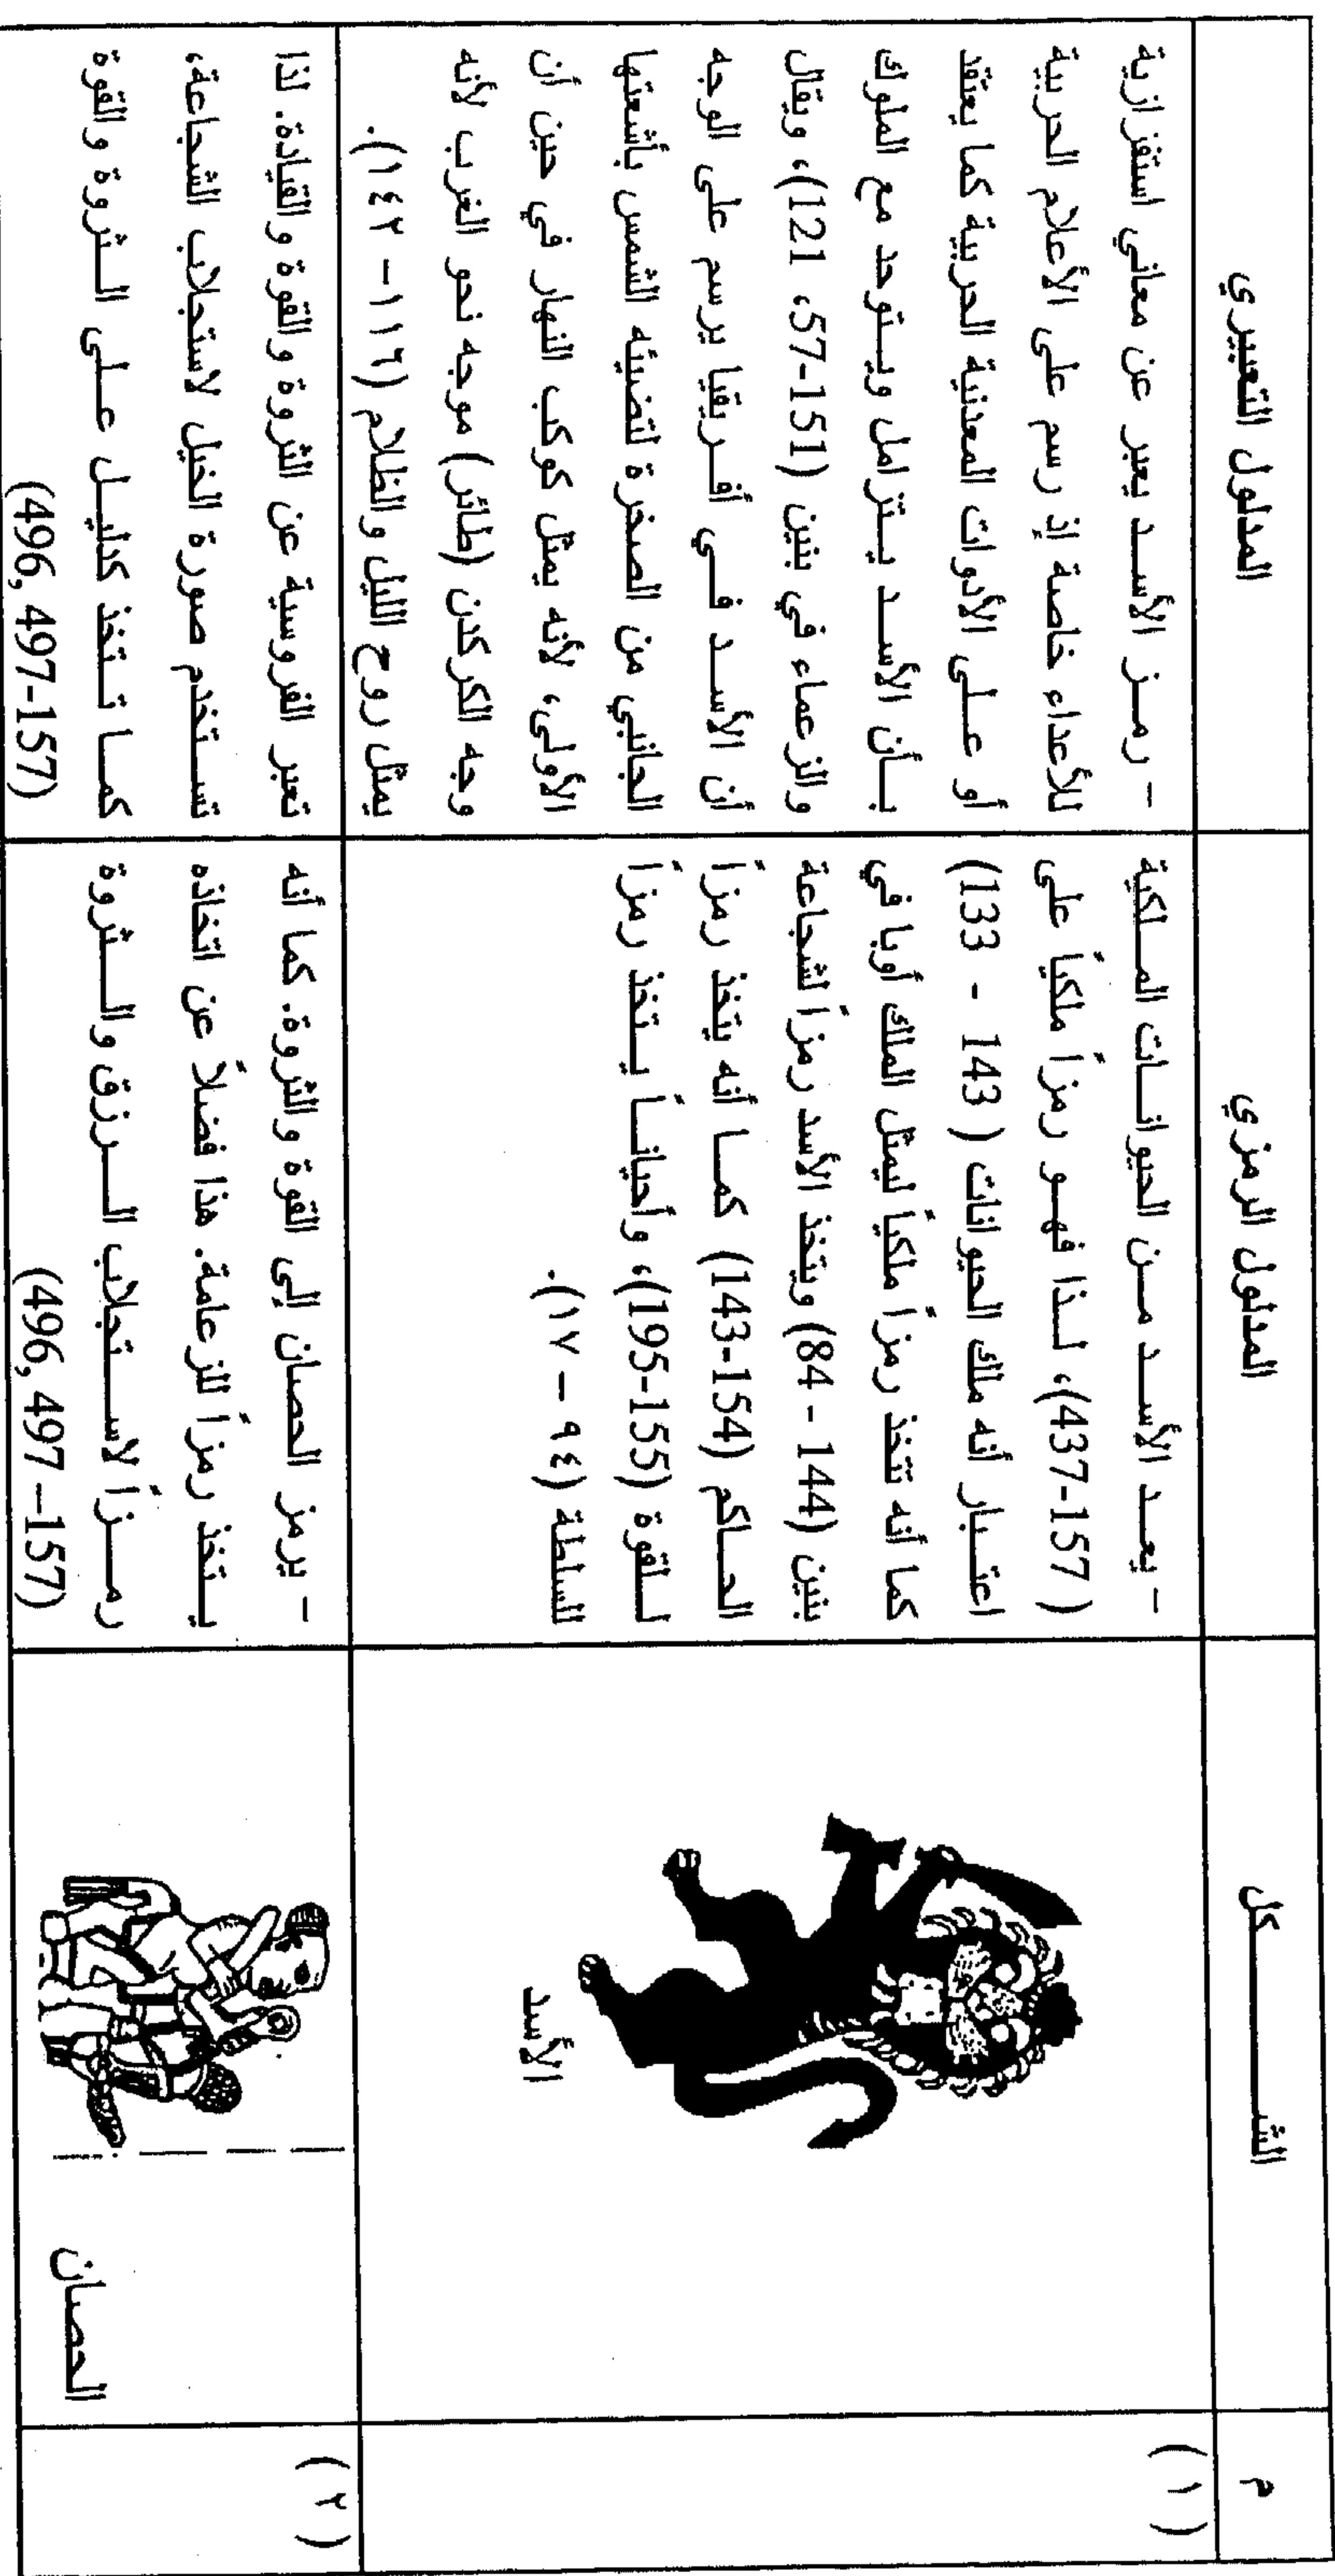 م
الشـــــكل
المدلول الرمزي
المدلول التعبيري
( ١ )
الأسد
- يعـد الأسـد مـن الحيوانـات المـلكية
( 157-437)، لـذا فهـو رمزاً ملكياً على
اعتـبار أنه ملك الحيوانات ( 143 - 133)
كما أنه تتخذ رمزاً ملكياً ليمثل الملك أوبا في
بنين (144 - 84) ويتخذ الأسد رمزاً لشجاعة
الحـاكم (154-143) كمـا أنه يتخذ رمزاً
لـلقوة (155-195)، وأحيانـاً يـتخذ رمزاً
للسلطة (٩٤ – ١٧).
- رمـز الأسـد يعبر عن معاني استفزازية
للأعداء خاصة إذ رسم على الأعلام الحربية
أو عـلى الأدوات المعدنية الحربية كما يعتقد
بـأن الأسـد يـتزامل ويـتوحد مع الملوك
والزعماء في بنين (151-57، 121)، ويقال
أن الأسـد فـي أفـريقيا يرسم على الوجه
الجانبي من الصخرة لتضيئه الشمس بأشعتها
الأولى، لأنه يمثل كوكب النهار في حين أن
وجه الكركدن (طائر) موجه نحو الغرب لأنه
يمثل روح الليل والظلام (١١٦– ١٤٢).
( ٢ )
الحصان
- يرمز الحصان إلى القوة والثروة. كما أنه
يـتخذ رمزاً للزعامة. هذا فضلاً عن اتخاذه
رمـزاً لاسـتجلاب الـرزق والـثروة
(157– 497 ,496)
تعبر الفروسية عن الثروة والقوة والقيادة. لذا
تسـتخدم صورة الخيل لاستجلاب الشجاعة،
كمـا تـتخذ كدليـل عـلى الـثروة والقوة
(157-497 ,496)